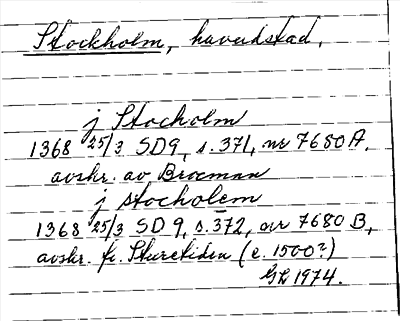 Stockholm, huvudstad.
j Stocholm
1368 25/3 SD9, s. 371, nr 7680 A.
avskr. av Brocman
j stocholem
1368 25/3 SD 9, s. 372, nr 7680 B,
avskr. fr. Sturetiden (c. 1500?)
GL 1974.